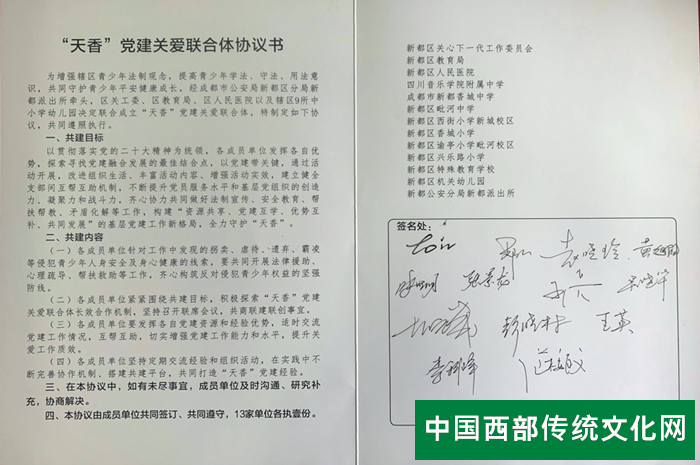 “天香”党建关爱联合体协议书
为增强辖区青少年法制观念，提高青少年学法、守法、用法意
识，共同守护青少年平安健康成长，经成都市公安局新都区分局新
都派出所牵头，区关工委、区教育局、区人民医院以及辖区9所中
小学幼儿园决定联合成立“天香”党建关爱联合体，特制定如下协
议，共同遵照执行。
一、共建目标
以贯彻落实党的二十大精神为统领，各成员单位发挥各自优
势，探索寻找党建融合发展的最佳结合点，以党建带关键，通过活
动开展，改进组织生活、丰富活动内容、增强活动实效，建立健全
支部间互帮互助机制，不断提升党员服务水平和基层党组织的创造
力、凝聚力和战斗力，齐心协力共同做好法制宣传、安全教育、帮
扶帮教、矛盾化解等工作，构建“资源共享、党建互学、优势互
补、共同发展”的基层党建工作新格局，全力守护“天香”。
二、共建内容
（一）各成员单位针对工作中发现的拐卖、虐待、遗弃、霸凌
等侵犯青少年人身安全及身心健康的线索，要共同开展法律援助、
心理疏导、帮扶救助等工作，齐心构筑反对侵犯青少年权益的坚强
防线。
（二）各成员单位紧紧围绕共建目标，积极探索“天香”党建
关爱联合体长效合作机制，坚持召开联席会议，共商联建联创事宜。
（三）各成员单位要发挥各自党建资源和经验优势，适时交流
党建工作情况，互帮互助，切实增强党建工作能力和水平，提升关
爱工作质效。
（四）各成员单位坚持定期交流经验和组织活动，在实践中不
断完善协作机制、搭建共建平台，共同打造“天香”党建经验。
三、在本协议中，如有未尽事宜，成员单位及时沟通、研究补
充，协商解决。
四、本协议由成员单位共同签订、共同遵守，13家单位各执壹份。
新都区关心下一代工作委员会
新都区教育局
新都区人民医院
四川音乐学院附属中学
成都市新都香城中学
新都区毗河中学
新都区西街小学新城校区
新都区香城小学
新都区谕亭小学毗河校区
新都区兴乐路小学
新都区特殊教育学校
新都区机关幼儿园
新都公安分局新都派出所
签名处：
王英
中国西部传统文化网